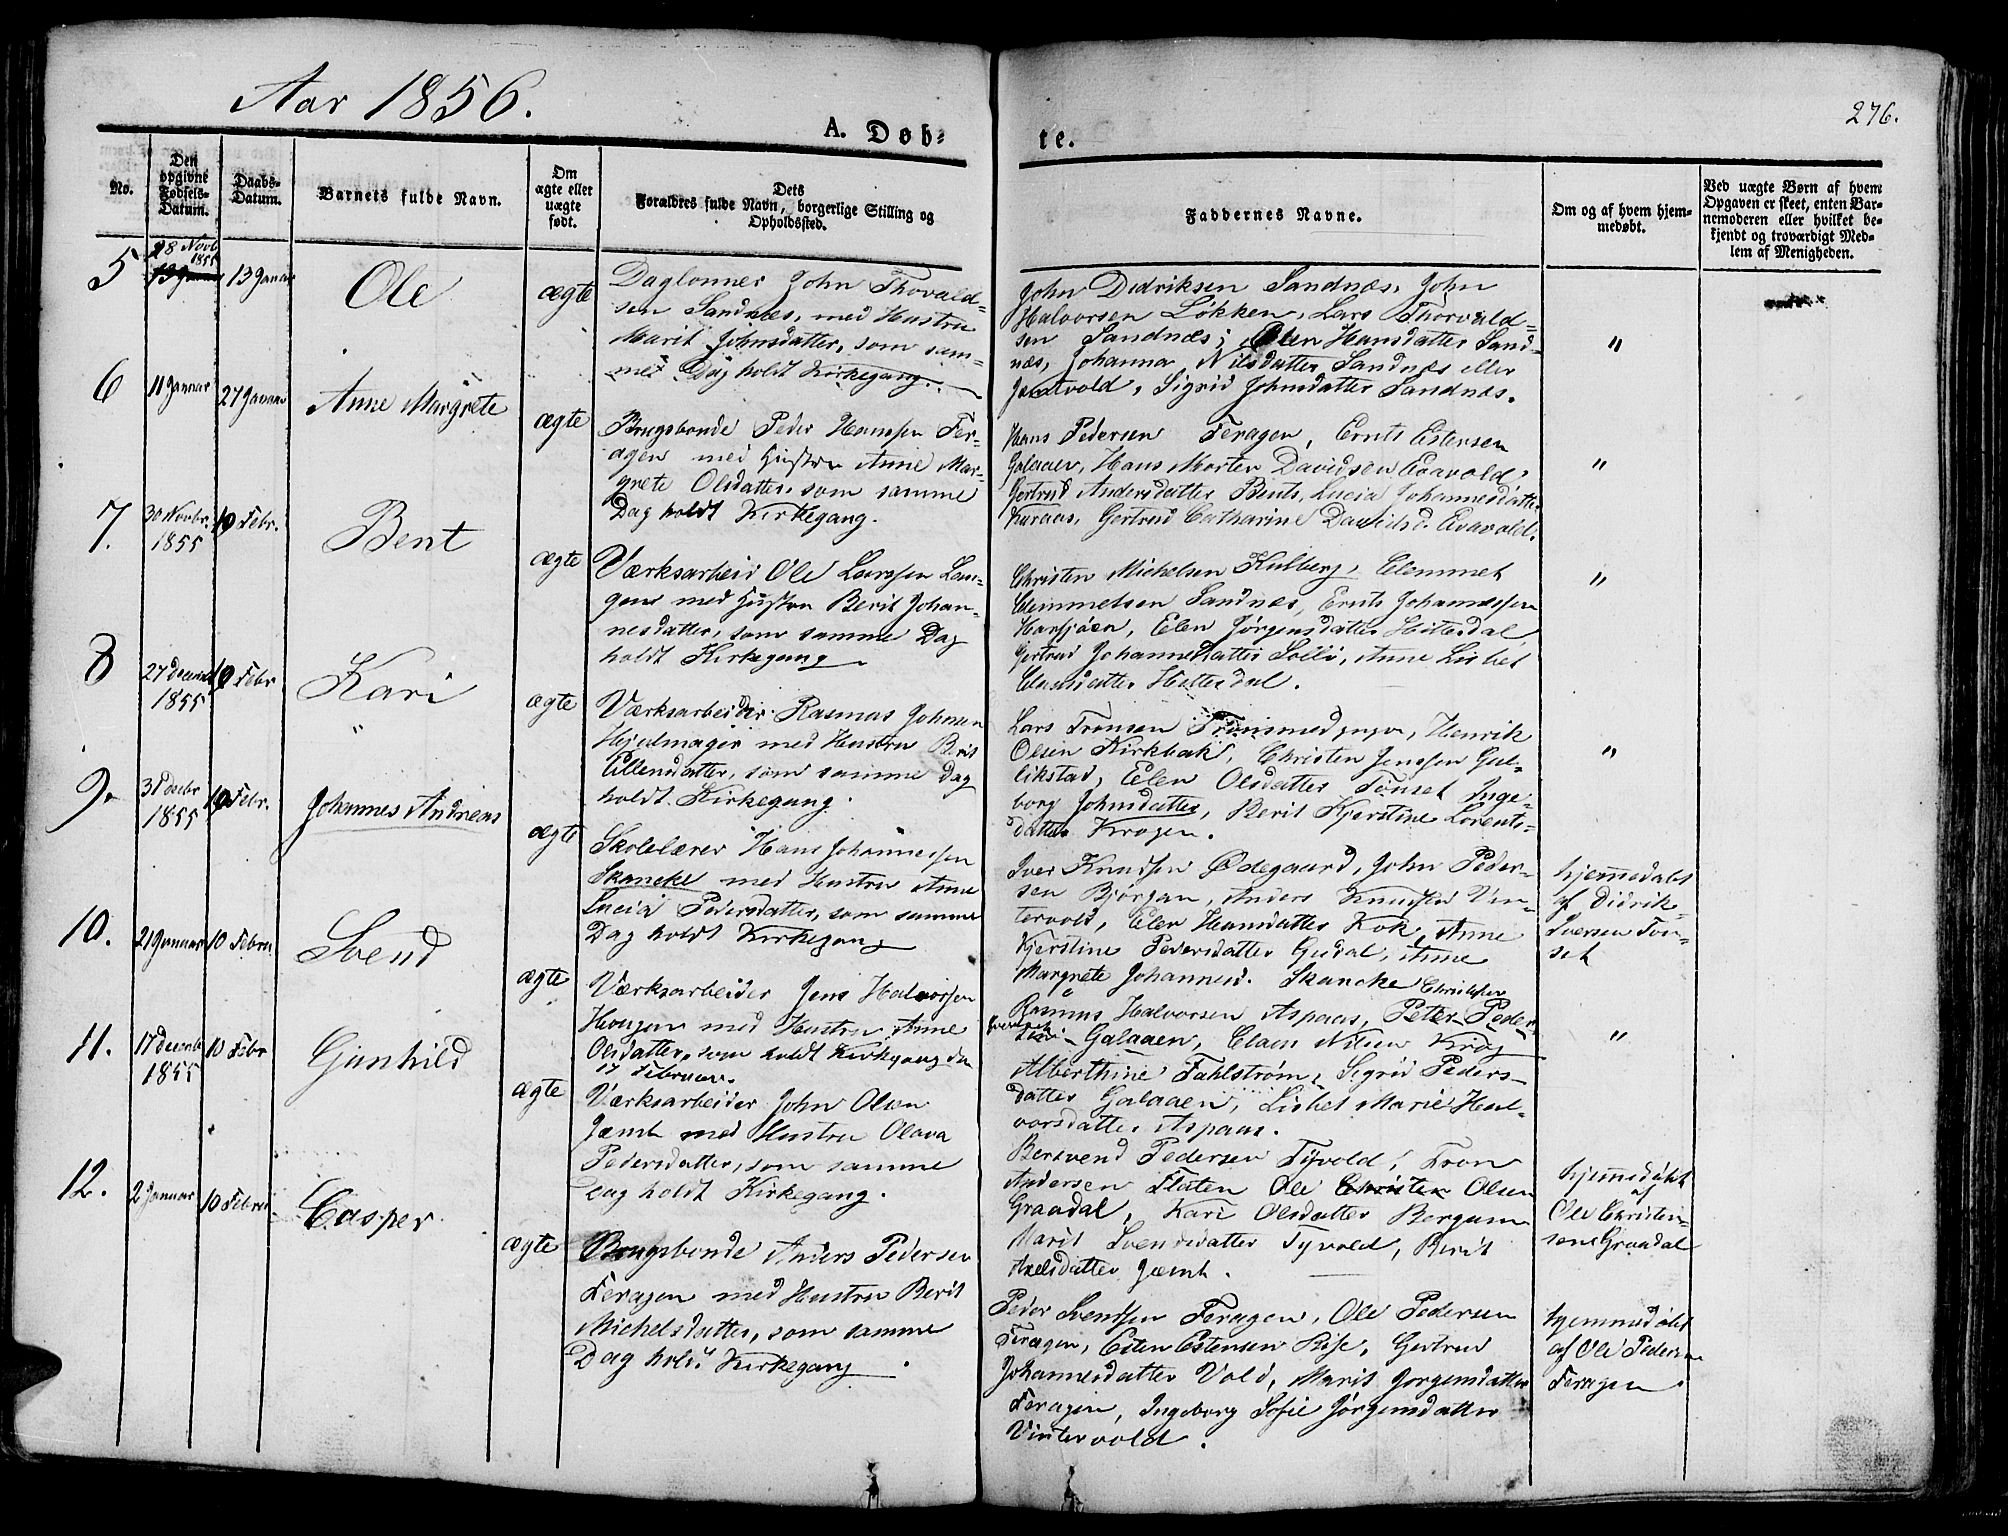 Aar 1856.
276.
A. Døb-
te.
No.
Den opgivne Fødsels-Datum.
Daabs-Datum.
Barnets fulde Navn.
Om ægte eller uægte født.
Dets
Forældres fulde Navn, borgerlige Stilling og
Opholdssted.
Faddernes Navne.
Om og af hvem hjem-
medøbt.
Ved uægte Børn af hvem
Opgaven er skeet, enten Bar-
nemoderen eller hvilket be-
kjendt og troværdigt Med-
lem af Menigheden.
5
28 Novb.
1855
13 Januar
13 Januar
Ole
ægte
Daglonner John Thorvald-
sen Sandnæs, med Hustru
Marit Johnsdatter, som sam-
me Dag holdt Kirkegang.
John Didriksen Sandnæs, John
Halvorsen Løkken, Lars Thorvald-
sen Sandnæs, Elen Hansdatter Sand-
næs, Johanna Nilsdatter Sandnæs eller
Sigrid Johnsdatter Sandnæs.
"
6
11 Januar
27 Januar
Anne Margrete
ægte
Brugsbonde Peder Hanssen Fer-
agen med Hustru Anne Mar-
grete Olsdatter, som samme
Dag holdt Kirkegang.
Hans Pedersen Feragen, Ernts Estensen
Galaaen, Hans Morten Davidsen Evavold,
Gertrud Andersdatter Bents, Lucia Johannesdatter
Kuraas, Gertrud Catharine Davidsd. Evavold.
"
7.
30 Novbr.
1855
10 Febr.
Bent
ægte
Værksarbeid Ole Larssen Lan-
gene med Hustru Berit Johan-
nesdatter, som samme Dag
holdt Kirkegang
Christen Michelsen Kulberg, Clemmet
Clemmetsen Sandnæs, Ernts Johannessen
Harsjøen, Elen Jørgensdatter Hittedal
Gertrud Johannesdatter Solli, Anne Lisbet
Clausdatter Hittedal.
"
8
27 Decemb
1855
10 Febr
Kari
ægte
Værksarbeider Rasmus Johnsen
Hejulmager med Hustru Berit
Ellensdatter, som samme Dag
holdt Kirkegang.
Lars Tronsen Henrik
Olsen Kirkbak, Christen Jenssen Gul-
likstad, Elen Olsdatter Tønset Inge-
borg Johnsdatter, Berit Kjerstine Lorents-
datter Krogen.
"
9.
31 Decbr
1855
10 Febr.
Johannes Andreas
ægte
Skolelærer Hans Johannessen
Skancke med Hustru Anne
Lucia Pedersdatter, som samme
Dag holdt Kirkegang
Iver Knudsen Ødegaard, John Peder-
sen Bjørgan, Anders Knudsen Vin-
tervold, Elen Hansdatter Kok, Anne
Kjerstine Pedersdatter Gjidal, Anne
Margrete Johannesd. Skancke
hjemmedøbt
af Didrik
Iversen Tøn-
set
10.
21 Januar
10 Februa
Svend
ægte
Værksarbeider Jens Halvorsen
Hougen med Hustru Anne
Olsdatter, som holdt Kirkegang den
17 Februar.
Christopher
Rasmus Halvorsen Aspaas, Peter Peder-
Galaaen, Claus Nilsen Krog
Alberthine Fahlstrøm, Sigrid Peders-
datter Galaaen, Lisbet Marie Hal-
vorsdatter Aspaas.
"
11.
17 Decemb
1855
10 Febr
Gunhild
ægte
Værksarbeider John Olsen
Jæmt med Hustru Olava
Pedersdatter, som samme
Dag holdt Kirkegang.
Bersvend Pedersen Tyvold, Tron
Andersen Flaten Ole Christen Olsen
Graadal, Kari Olsdatter Bergum
Marit Svendsdatter Tyvold, Berit
Axelsdatter Jæmt.
hjemmedøbt
af
Ole Christen-
sen Graadal
12.
2 Januar
10 Februar
Casper
ægte
Brugsbonde Anders Pedersen
Feragen med Hustru Berit
Michelsdatter, som samme
Dag holdt Kirkegang.
Peder Svendsen Feragen, Ole Pedersen
Feragen, Esten Estensen Risc, Gertrud
Johannesdatter Vold, Marit Jørgensdatter
Feragen, Ingeborg Sofie Jørgensdatter
Vintervold.
hjemmedøbt
af Ole Pedersen
Feragen